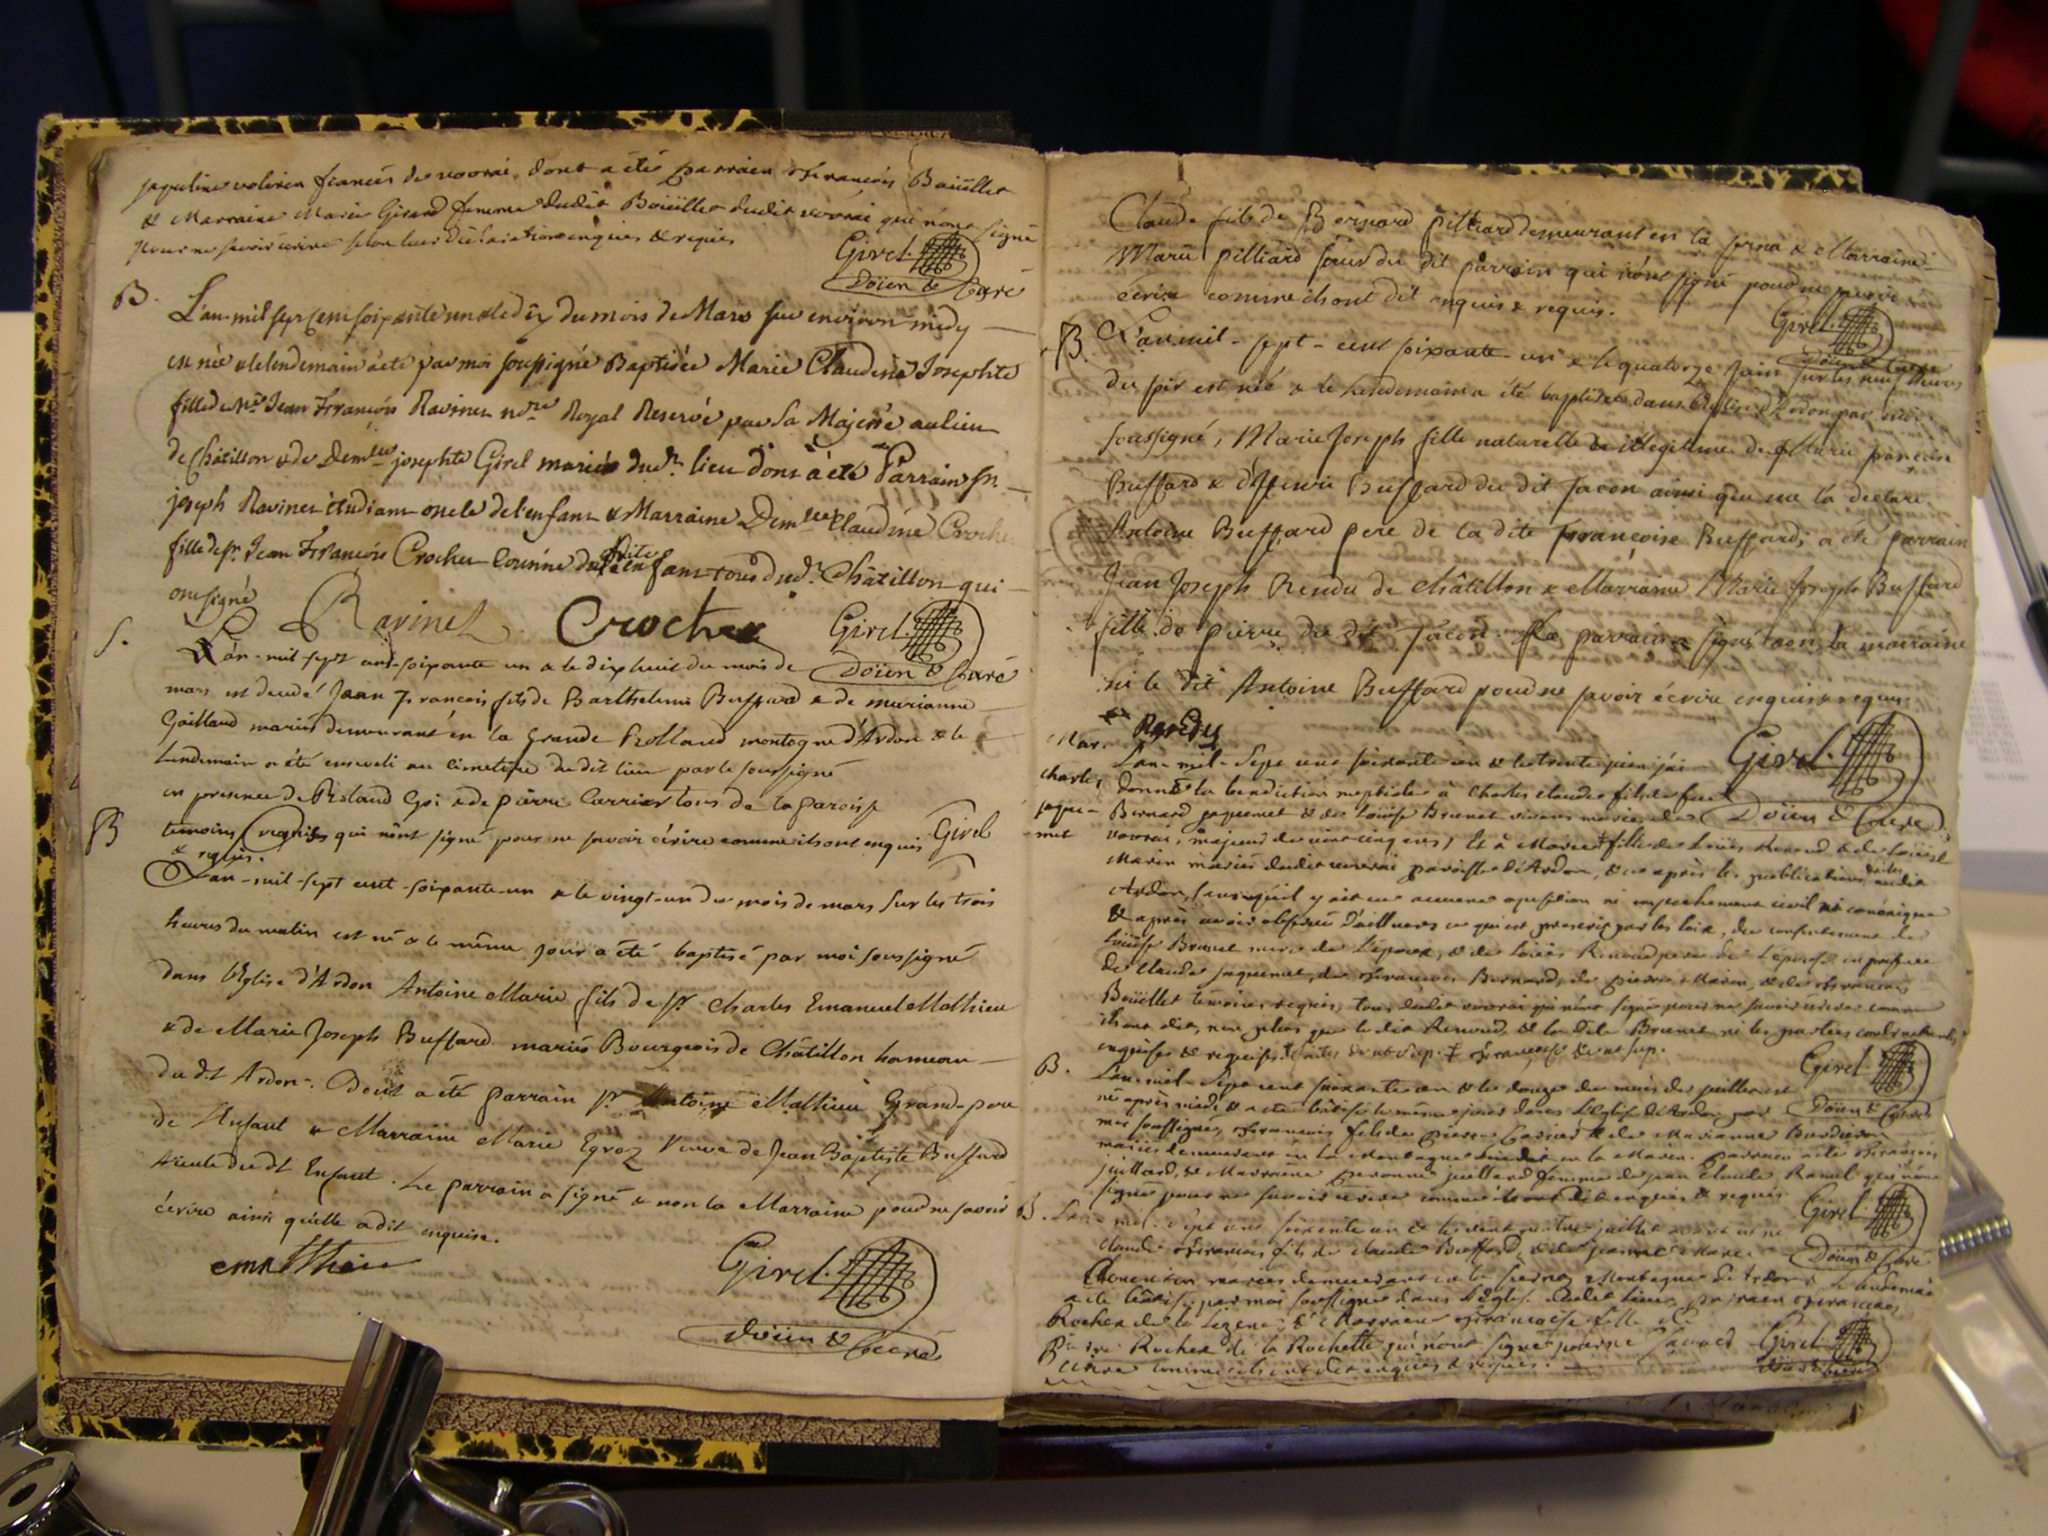 dont a été parrain François Boüillet
& Marraine Marie Girard femme dudit Boüillet dudit vovrai qui n'ont signé
pour ne savoir écrire selon leur déclaration enquis & requis
Girel
Doïen & Curé
B.
L'an mil sept cent soixante un & le dix du mois de Mars sur environ midy
est née & le lendemain a été par moi soussigné Baptisée Marie Claudine Josephte
fille de Me Jean François Ravinet nre Royal Reservé par Sa Majesté au lieu
de Châtillon & de Demlle josephte Girel mariés dud. lieu dont a été Parrain Sr.
joseph Ravinet étudiant oncle de l'enfant & Marraine Demlle Claudine Crochet
fille de Sr. Jean François Crochet Cousine dudite enfant tous dud. Châtillon qui
ont signé
Ravinet Crochet Girel
Doïen & Curé
S.
L'an-mil-sept cent-soixante un & le dix huit du mois de
mars est decedé Jean François fils de Barthelemi Buffard & de Marianne
Gaillard mariés demeurant en la grande montagne d'Ardon & le
Lendemain a été enseveli au cimetière du dit lieu par le soussigné
en presence de & de pierre Carrier tous de la paroisse
temoins requis qui n'ont signé pour ne savoir écrire comme ils ont enquis
& requis.
Girel
B
L'an-mil-sept cent-soixante-un & le vingt-un du mois de mars sur les trois
heures du matin est né & le même jour a été baptisé par moi soussigné
dans l'Eglise d'Ardon Antoine Marie fils de Sr. Charles Emanuel Mathieu
& de Marie Joseph Buffard mariés Bourgeois de Châtillon hameau
du dt Ardon. Dont a été parrain Sr. Antoine Mathieu Grand-pere
de l'Enfant & Marraine Marie Egroz Veuve de Jean Baptiste Buffard
Aieule du dt Enfant. Le parrain a signé & non la Marraine pour ne savoir
écrire ainsi qu'elle a dit enquise.
Girel
Doïen & Curé
Claude fils de Bernard pilliard demeurant en la serna & Marraine
Marie pilliard sœur du dit parrain qui n'ont signé pour ne savoir
écrire comme ils ont dit enquis & requis.
Girel
Doïen & Curé
B.
L'an mil-sept-cent soixante-un & le quatorze Juin sur les neuf heures
du soir est née & le Lendemain a été baptisée dans l'Eglise d'Ardon par moi
soussigné, Marie Joseph fille naturelle & illegitime de Marie françoise
Buffard & d'Henri Buffard du dit Jacon ainsi que me l'a declaré
Antoine Buffard pere de la dite françoise Buffard, a été parrain
Jean Joseph Rendu de Châtillon & Marraine Marie Joseph Buffard
fille de pierre du dit Jacon. Le parrain a signé non la marraine
ni le dit Antoine Buffard pour ne savoir écrire enquis & requis
Rendu
Girel
Doïen & Curé
Mar.
Charles
jaque-
met
L'an-mil-Sept cent soixante un & le trente juin j'ai
donné la benediction nuptiale à Charles Claude fils de feu
Bernard jaquemet & de Loüise Brunet
vovrai, majeur de vint cinq ans, Et à Marie fille de Loüis Renoud & de
mariés dudit vovrai paroisse d'Ardon, & ce après les publications
Ardon, sans qu'il y ait eu aucune oposition ni empechement civil ni canonique
& après avoir observé d'ailleurs ce qui est prescrit par les loix, du consentement de
Loüise Brunet mere de L'epoux, & de Loüis Renoud pere de L'epouse en presence
de Claude jaquemet, de François Bernard, de pierre & de François
Boüillet temoins requis, tous dudit vovrai qui n'ont signé pour ne savoir écrire comme
ils ont dit, non plus que le dit Renoud & la dite Brunet ni les parties contractantes
enquises & requises
Girel
Doïen & Curé
B.
L'an-mil-Sept cent soixante un & le douze du mois de juillet est
né après midi & a été bâtisé le même jour dans L'Eglise d'Ardon par
moi soussigné, François fils de pierre & de Marianne
mariés demeurant en la Montagne parrain a été François
juillard, & Marraine peronne juillard femme de jean Claude Ramel qui n'ont
signé pour ne savoir écrire comme ils ont dit enquis & requis
Girel
Doïen & Curé
B.
L'an mil sept cent soixante un & le vint quatre juillet est né
Claude François fils de Claude Buffard, & de
mariés demeurant en la serna Montagne d'Ardon & le lendemain
a été bâtisé par moi soussigné dans L'Eglise dudit Lieu, parrain François
Rochex de la & Marraine Françoise fille de
Pierre Rochex de la Rochette qui n'ont signé pour ne savoir
écrire comme ils ont dit enquis & requis.
Girel